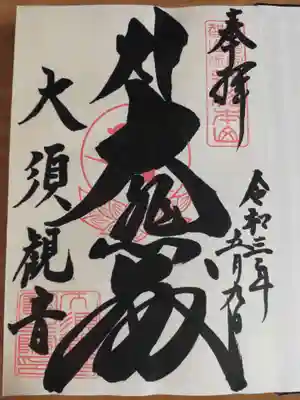 奉拝
令和三年
五月九日
大悲殿
大須観音